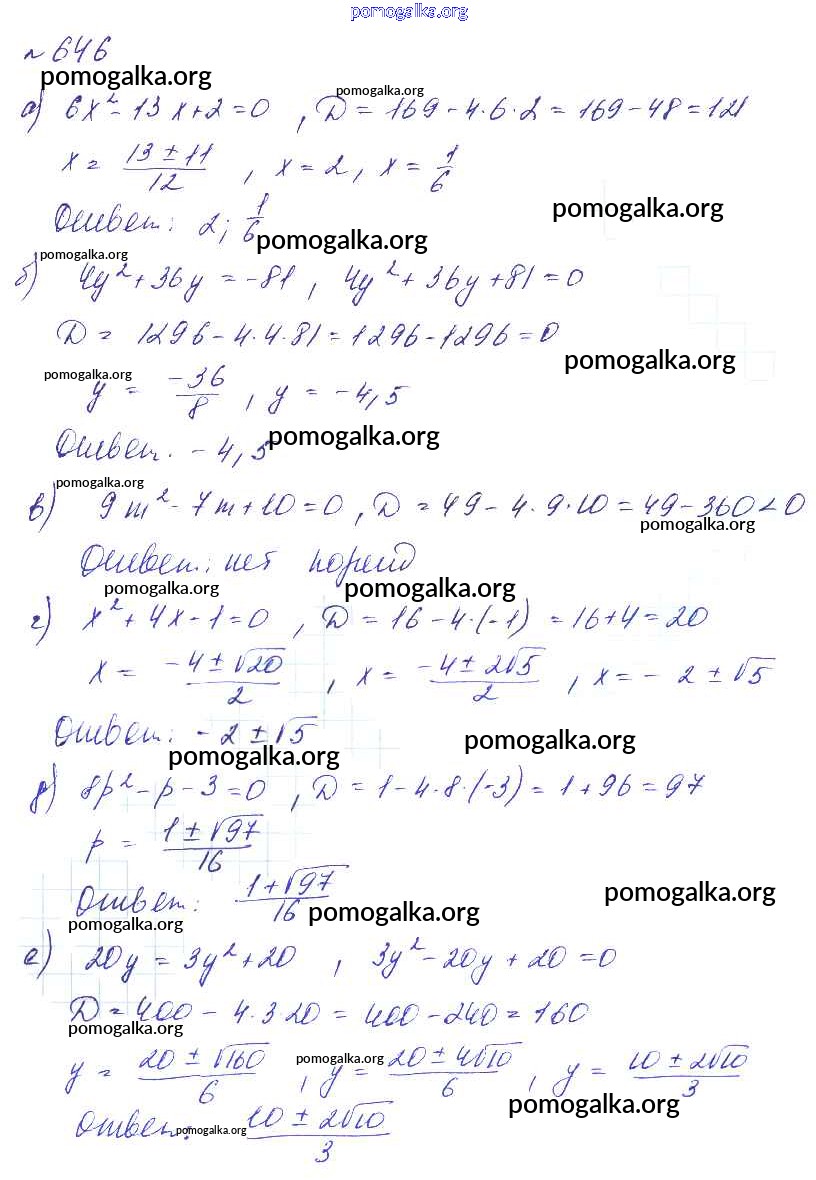 pomogalka.org
№ 646
pomogalka.org
pomogalka.org
а) 6x² - 13x + 2 = 0 , D = 169 - 4·6·2 = 169 - 48 = 121
x = (13 ± 11)/12 , x = 2, x = 1/6
pomogalka.org
Ответ: 2; 1/6
pomogalka.org
pomogalka.org
б) 4y² + 36y = -81 , 4y² + 36y + 81 = 0
D = 1296 - 4·4·81 = 1296 - 1296 = 0
pomogalka.org
pomogalka.org
y = -36/8 , y = -4,5
Ответ. -4,5
pomogalka.org
pomogalka.org
в) 9m² - 7m + 10 = 0 , D = 49 - 4·9·10 = 49 - 360 < 0
pomogalka.org
Ответ: нет корней
pomogalka.org
pomogalka.org
г) x² + 4x - 1 = 0 , D = 16 - 4·(-1) = 16 + 4 = 20
x = (-4 ± √20)/2 , x = (-4 ± 2√5)/2 , x = -2 ± √5
Ответ: -2 ± √5
pomogalka.org
pomogalka.org
д) 8p² - p - 3 = 0 , D = 1 - 4·8·(-3) = 1 + 96 = 97
p = (1 ± √97)/16
pomogalka.org
Ответ: (1 + √97)/16
pomogalka.org
pomogalka.org
е) 20y = 3y² + 20 , 3y² - 20y + 20 = 0
D = 400 - 4·3·20 = 400 - 240 = 160
pomogalka.org
pomogalka.org
y = (20 ± √160)/6 , y = (20 ± 4√10)/6 , y = (10 ± 2√10)/3
pomogalka.org
Ответ: (10 ± 2√10)/3
pomogalka.org